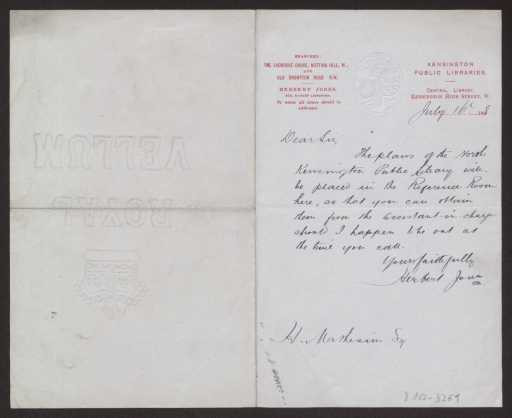 BRANCHES
THE LADBROKE GROVE, NOTTING HILL, W.,
AND
OLD BROMPTON ROAD S.W.
HERBERT JONES,
To whom all letters should be
addressed.
KENSINGTON
PUBLIC LIBRARIES.
CENTRAL LIBRARY,
KENSINGTON HIGH STREET, W.
July
Dear Sir,
The plans of the North
Kensington Public Library will
be placed in the Reference Room
here, so that you can obtain
them from the assistant-in-charge
should I happen to be out at
the time you call.
Yours faithfully
Herbert Jones
Esq
VELLUM
ROYAL